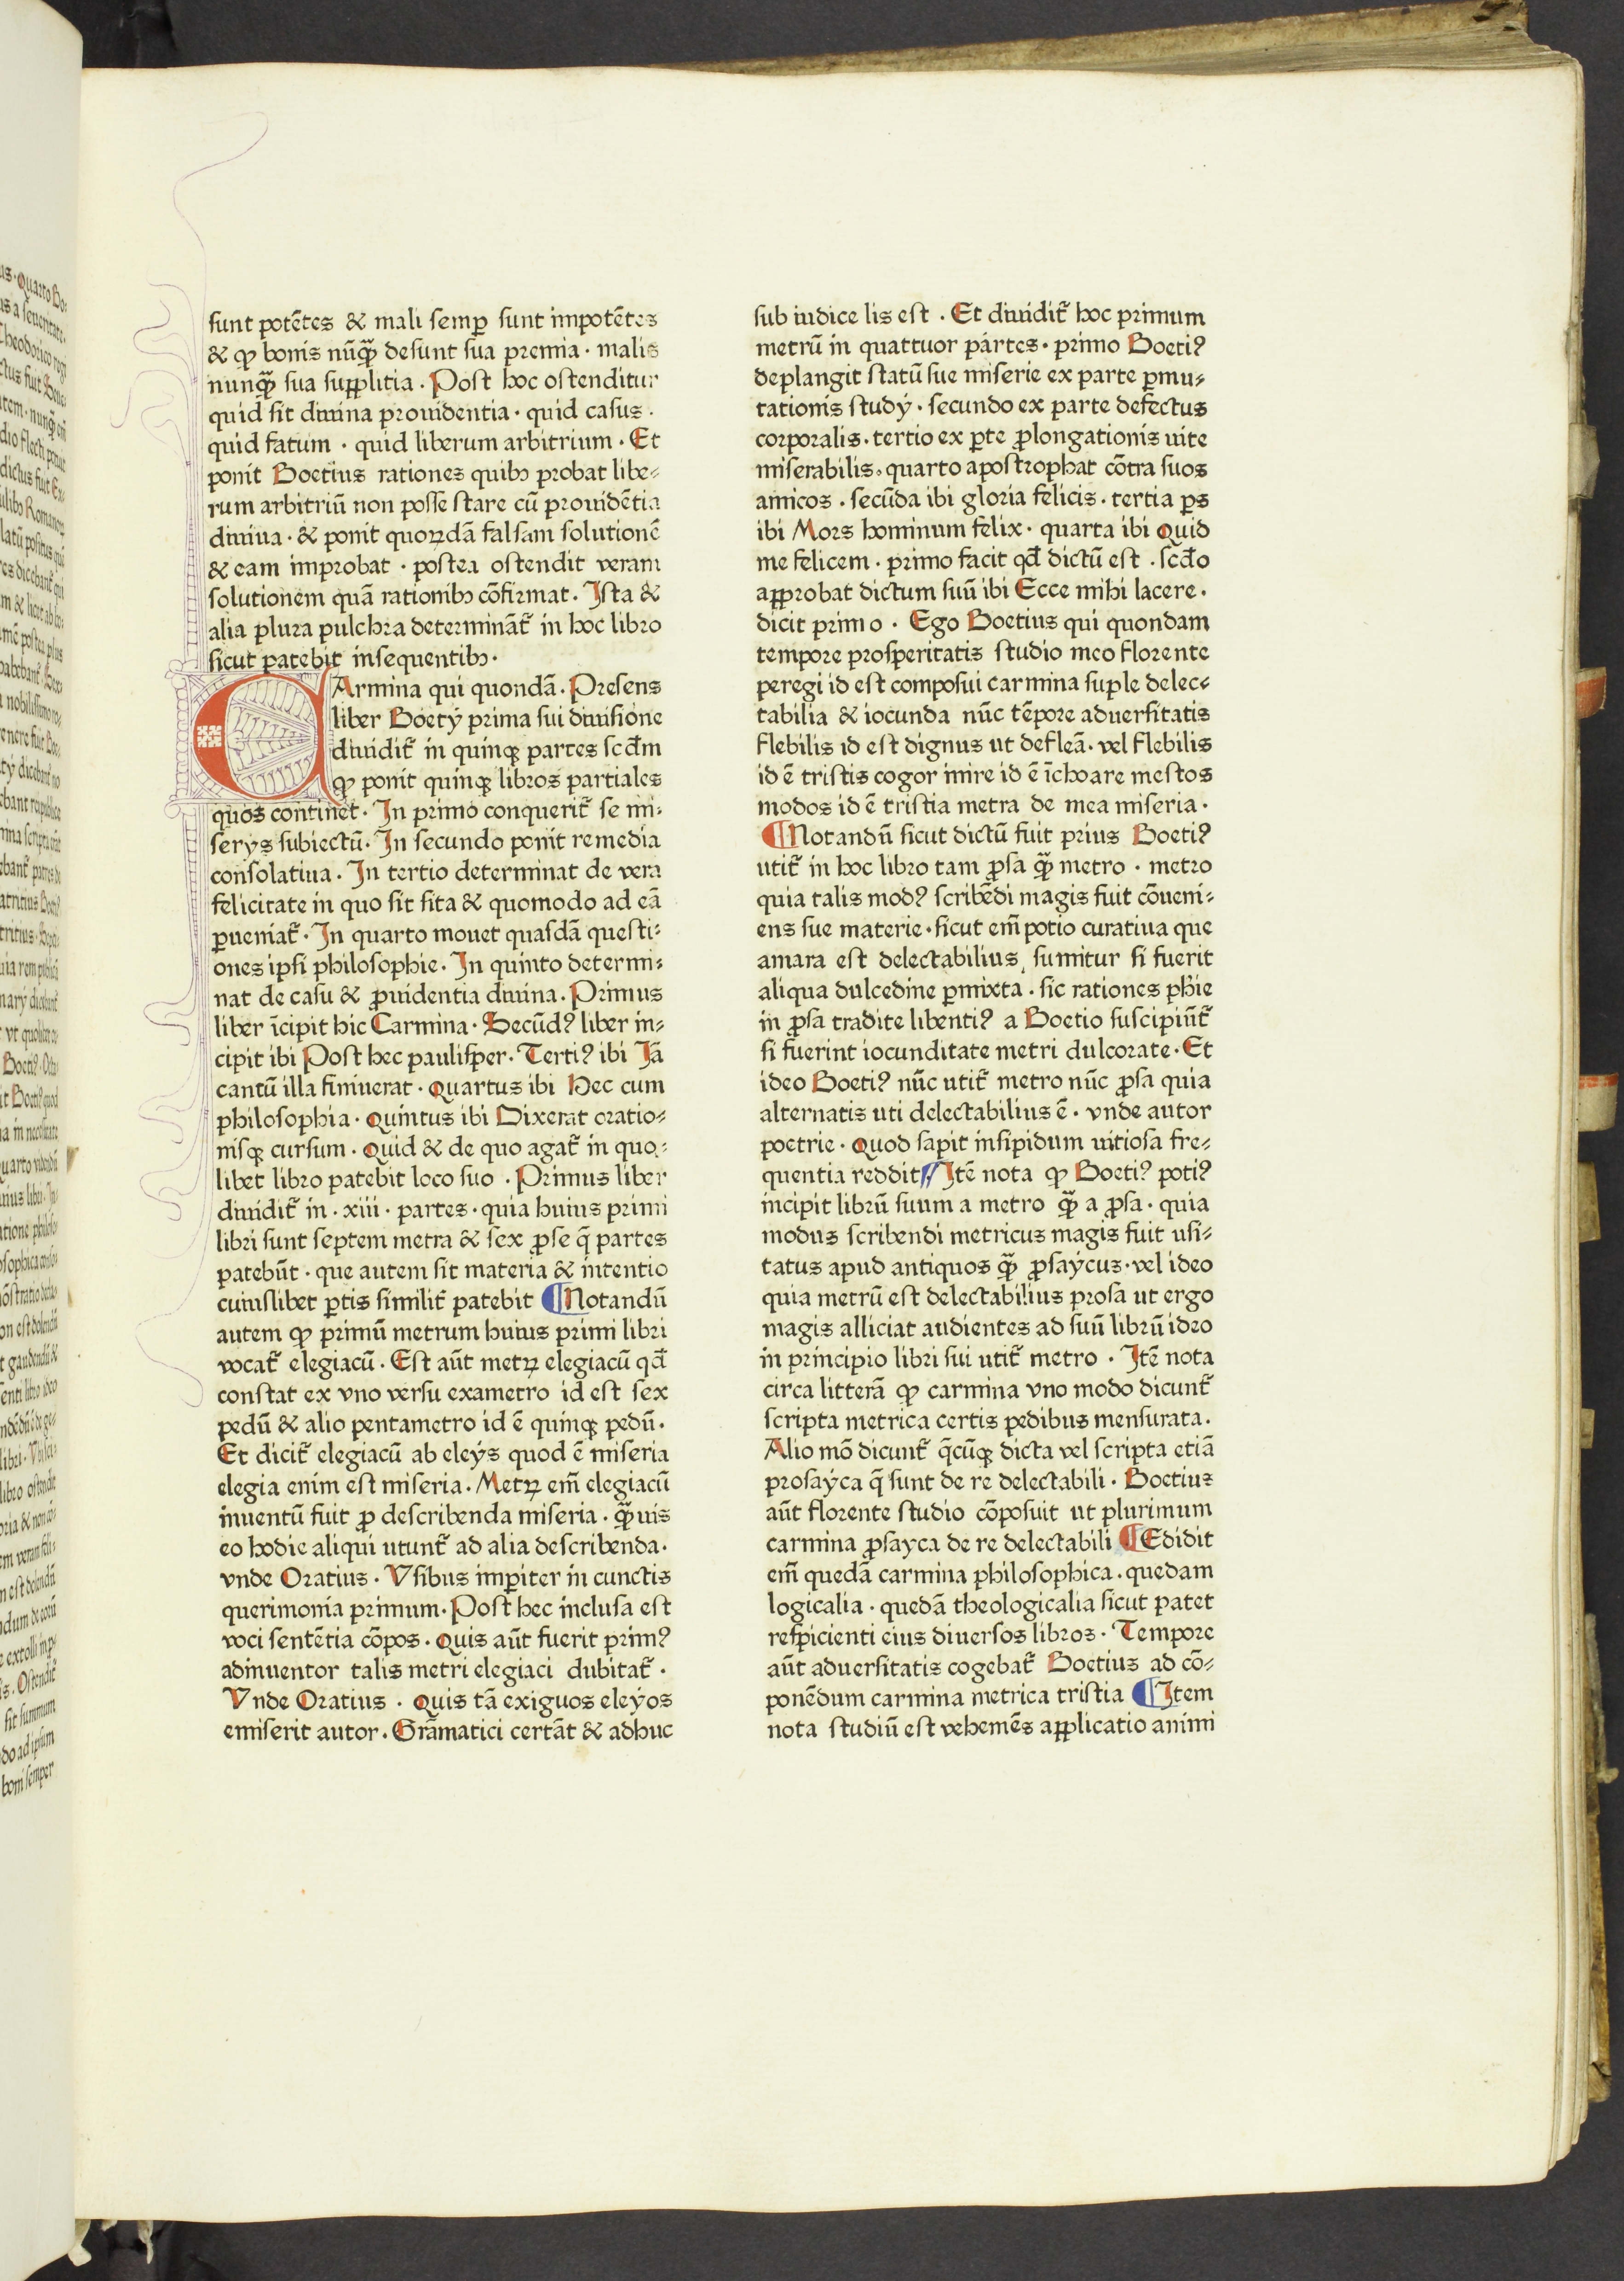 sunt potētes & mali semꝑ sunt impotētes
& ꝙ bonis nūꝗ̃ desunt sua premia · malis
nunꝗ̃ sua supplitia . Post hoc ostenditur
quid sit diuina prouidentia · quid casus ·
quid fatum · quid liberum arbitrium · Et
ponit Boetius rationes quibꝫ probat libe⸗
rum arbitriū non posse stare cū prouidētia
diuina · & ponit quoꝝdā falsam solutionē
& eam improbat · postea ostendit veram
solutionem quā rationibꝫ cōfirmat . Ista &
alia plura pulchra determināt᷑ in hoc libro
sicut patebit insequentibꝫ ·
CArmina qui quondā . Presens
liber Boetÿ prima sui diuisione
diuidit᷑ in quinqꝫ partes scd̄m
ꝙ ponit quinqꝫ libros partiales
quos continet · In primo conquerit᷑ se mi⸗
serÿs subiectū · In secundo ponit remedia
consolatiua . In tertio determinat de vera
felicitate in quo sit sita & quomodo ad eā
ꝑueniat᷑ · In quarto mouet quasdā questi⸗
ones ipsi philosophie · In quinto determi⸗
nat de casu & ꝓuidentia diuina . Primus
liber īcipit hic Carmina · Secūdꝰ liber in⸗
cipit ibi Post hec paulisper · Tertiꝰ ibi Jā
cantū illa finiuerat · quartus ibi Hec cum
philosophia · quintus ibi Dixerat oratio⸗
nisqꝫ cursum · quid & de quo agat᷑ in quo⸗
libet libro patebit loco suo · Primus liber
diuidit᷑ in · xiii · partes · quia huius primi
libri sunt septem metra & sex ꝓse q̄ partes
patebūt · que autem sit materia & intentio
cuiuslibet ꝑtis similit᷑ patebit ¶ Notandū
autem ꝙ primū metrum huius primi libri
vocat᷑ elegiacū · Est aūt metꝝ elegiacū qd̄
constat ex vno versu exametro id est sex
pedū & alio pentametro id ē quinqꝫ pedū .
Et dicit᷑ elegiacū ab eleÿs quod ē miseria
elegia enim est miseria . Metꝝ em̄ elegiacū
inuentū fuit ꝓ describenda miseria · ꝗ̃uis
eo hodie aliqui utunt᷑ ad alia describenda ·
vnde Oratius · Vsibus impariter in cunctis
querimonia primum · Post hec inclusa est
voci sentētia cōpos · quis aūt fuerit primꝰ
adinuentor talis metri elegiaci dubitat᷑ ·
Vnde Oratius · quis tā exiguos eleÿos
emiserit autor . Grāmatici certāt & adhuc
sub iudice lis est . Et diuidit᷑ hoc primum
metrū in quattuor partes · primo Boetiꝰ
deplangit statū sue miserie ex parte ꝑmu⸗
tationis studÿ · secundo ex parte defectus
corporalis · tertio ex ꝑte ꝓlongationis uite
miserabilis · quarto apostrophat cōtra suos
amicos . secūda ibi gloria felicis · tertia ꝑs
ibi Mors hominum felix · quarta ibi quid
me felicem · primo facit qd̄ dictū est . scd̄o
approbat dictum suū ibi Ecce mihi lacere ·
dicit primo · Ego Boetius qui quondam
tempore prosperitatis studio meo florente
peregi id est composui carmina suple delec⸗
tabilia & iocunda nūc tēpore aduersitatis
flebilis id est dignus ut defleā · vel flebilis
id ē tristis cogor inire id ē īchoare mestos
modos id ē tristia metra de mea miseria ·
¶ Notandū sicut dictū fuit prius Boetiꝰ
utit᷑ in hoc libro tam ꝓsa ꝗ̃ metro · metro
quia talis modꝰ scribēdi magis fuit cōueni⸗
ens sue materie · sicut em̄ potio curatiua que
amara est delectabilius sumitur si fuerit
aliqua dulcedine ꝑmixta · sic rationes phie
in ꝓsa tradite libentiꝰ a Boetio suscipiūt᷑
si fuerint iocunditate metri dulcorate · Et
ideo Boetiꝰ nūc utit᷑ metro nūc ꝓsa quia
alternatis uti delectabilius ē · vnde autor
poetrie · quod sapit insipidum uitiosa fre⸗
quentia reddit ¶ Itē nota ꝙ Boetiꝰ potiꝰ
incipit librū suum a metro ꝗ̃ a ꝓsa · quia
modus scribendi metricus magis fuit usi⸗
tatus apud antiquos ꝗ̃ ꝓsaÿcus · vel ideo
quia metrū est delectabilius prosa ut ergo
magis alliciat audientes ad suū librū ideo
in principio libri sui utit᷑ metro · Itē nota
circa litterā ꝙ carmina vno modo dicunt᷑
scripta metrica certis pedibus mensurata .
Alio mō dicunt᷑ q̄cūqꝫ dicta vel scripta etiā
prosaÿca q̄ sunt de re delectabili · Boetius
aūt florente studio cōposuit ut plurimum
carmina ꝓsayca de re delectabili ¶ Edidit
em̄ quedā carmina philosophica . quedam
logicalia · quedā theologicalia sicut patet
respicienti eius diuersos libros · Tempore
aūt aduersitatis cogebat᷑ Boetius ad cō⸗
ponēdum carmina metrica tristia ¶ Item
nota studiū est vehemēs applicatio animi